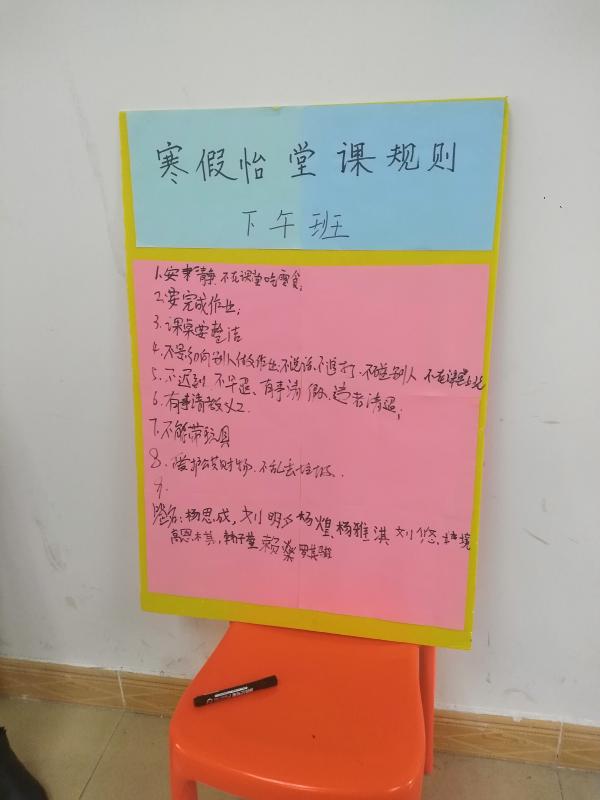 寒假怡堂课规则
下午班
1.安静 不在课堂吃零食;
2.要完成作业;
3.课桌要整洁
4.不影响别人做作业.不说话.不追打.不碰别人 不在课堂
5.不迟到 不早退、有事请假,违者清退;
6.有事请教义工
7.不能带玩具
8.爱护公共财物.不乱丢垃圾.
9.
签名:杨思成,刘明 杨煌、杨雅淇 刘悠
高恩 赖燊